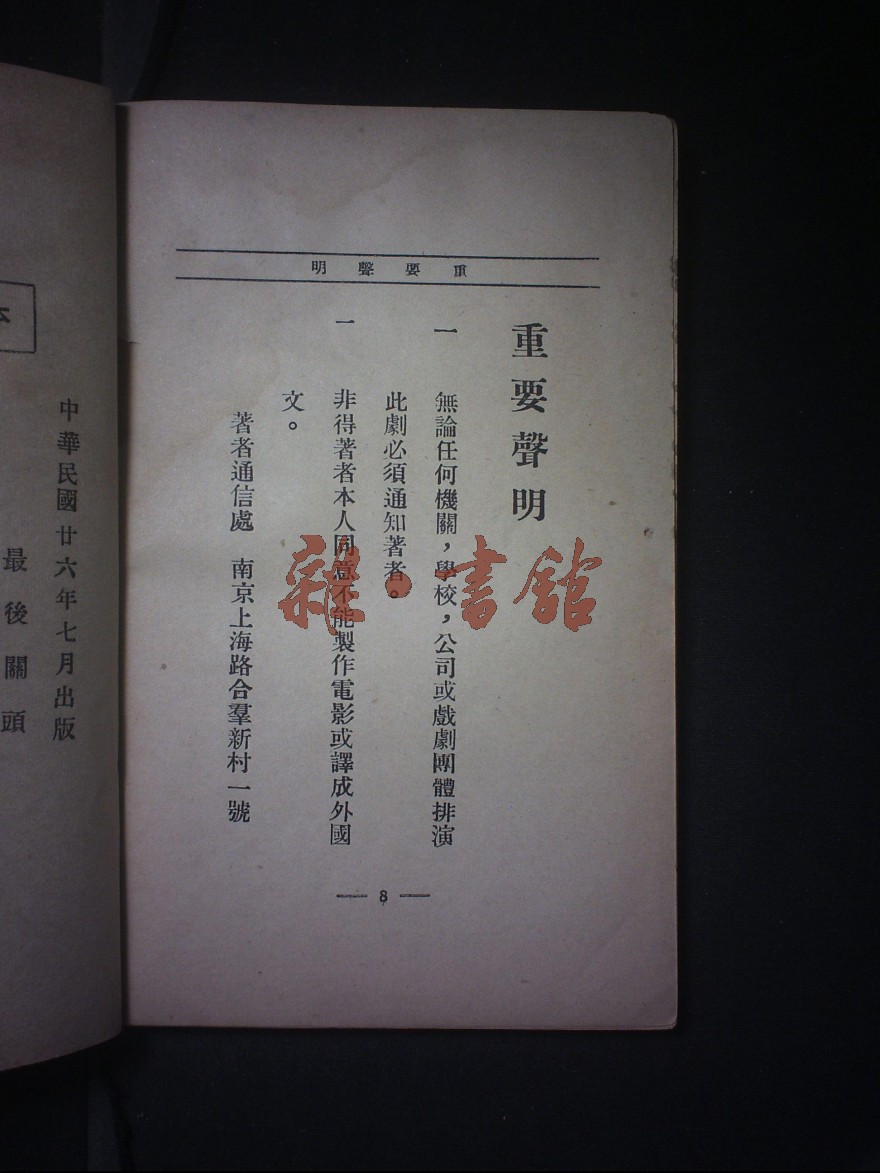 重要聲明
重要聲明
一 無論任何機關，學校，公司或戲劇團體排演
此劇必須通知著者。
一 非得著者本人同意不能製作電影或譯成外國
文。
著者通信處 南京上海路合羣新村一號
— 8 —
中華民國廿六年七月出版
最後關頭
雜·書館